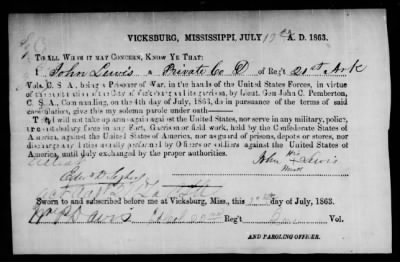 VICKSBURG, MISSISSIPPI, JULY 10th A. D. 1863.
TO ALL WHOM IT MAY CONCERN, KNOW YE THAT:
I John Lewis a Private Co D of Reg't 21st Ark
Vols. C. S. A., being a Prisoner of War, in the hands of the United States Forces, in virtue
of the capitulation of the City of Vicksburg and its garrison, by Lieut. Gen John C. Pemberton,
C. S. A., Commanding, on the 4th day of July, 1863, do in pursuance of the terms of said
capitulation, give this my solemn parole under oath
That I will not take up arms again against the United States, nor serve in any military, police,
or constabulary force in any Fort, Garrison or field work, held by the Confederate States of
America, against the United States of America, nor as guard of prisons, depots or stores, nor
discharge any duties usually performed by Officers or soldiers against the United States of
America, until duly exchanged by the proper authorities.
John his Lewis
mark
Sworn to and subscribed before me at Vicksburg, Miss., this 10th day of July, 1863.
Davis Reg't Vol.
AND PAROLING OFFICER.